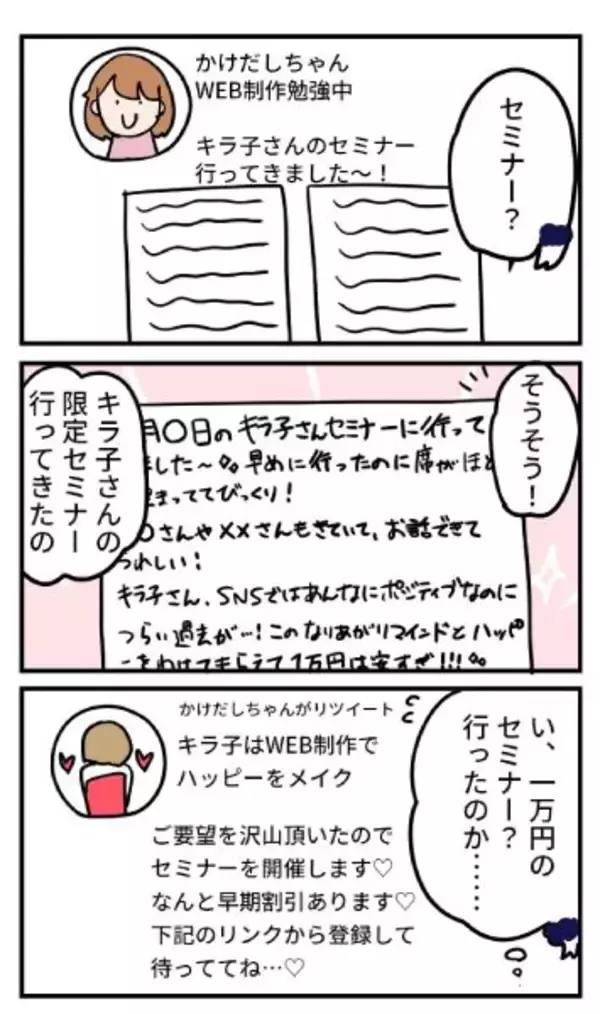 かけだしちゃん
WEB制作勉強中
キラ子さんのセミナー
行ってきました〜！
セミナー？
そうそう！
月〇日のキラ子さんセミナーに行って
ました〜。早めに行ったのに席がほと
埋まっててびっくり！
〇さんや××さんもきていて、お話できて
うれしい！
キラ子さん、SNSではあんなにポジティブなのに
つらい過去が…！このなりあがりマインドとハッピ
をわけてもらえて1万円は安すぎ!!!
キラ子さんの
限定セミナー
行ってきたの
かけだしちゃんがリツイート
キラ子はWEB制作で
ハッピーをメイク
ご要望を沢山頂いたので
セミナーを開催します♡
なんと早期割引あります♡
下記のリンクから登録して
待っててね…♡
い、一万円の
セミナー？
行ったのか……